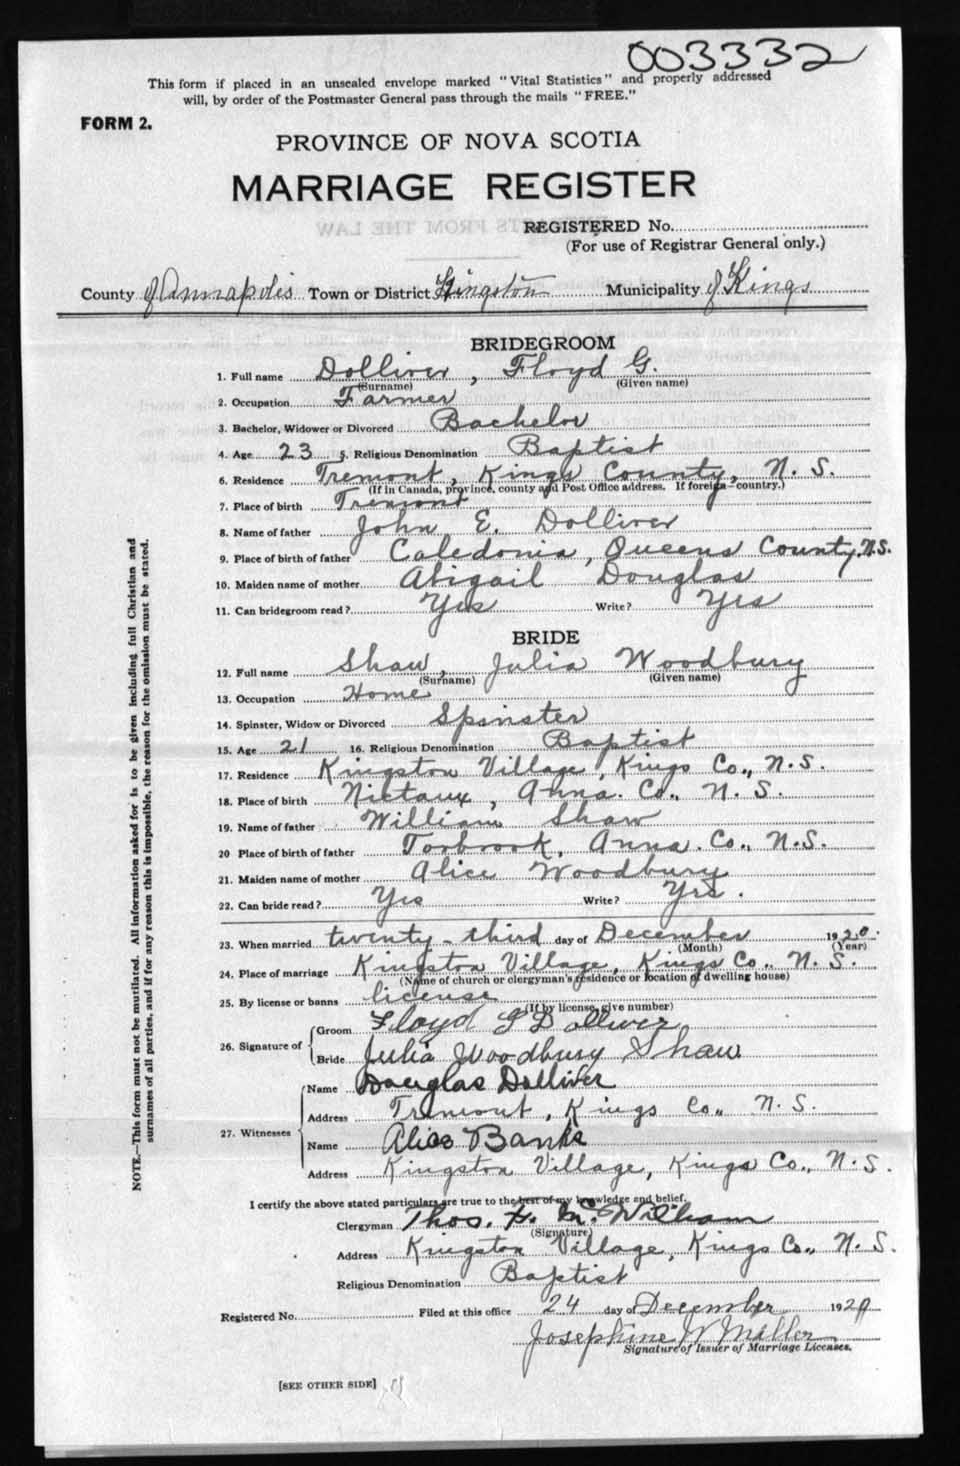 003332
This form if placed in an unsealed envelope marked "Vital Statistics" and properly addressed
will, by order of the Postmaster General pass through the mails "FREE."
FORM 2.
PROVINCE OF NOVA SCOTIA
MARRIAGE REGISTER
REGISTERED No.
(For use of Registrar General only.)
County of Annapolis Town or District Kingston Municipality of Kings
BRIDEGROOM
1. Full name Dolliver, Floyd G.
(Surname) (Given name)
2. Occupation Farmer
3. Bachelor, Widower or Divorced Bachelor
4. Age 23 5. Religious Denomination Baptist
6. Residence Tremont, Kings County, N. S.
(If in Canada, province, county and Post Office address. If foreign—country.)
7. Place of birth Tremont
8. Name of father John E. Dolliver
9. Place of birth of father Caledonia, Queens County, N.S.
10. Maiden name of mother Abigail Douglas
11. Can bridegroom read? Yes Write? Yes
BRIDE
12. Full name Shaw, Julia Woodbury
(Surname) (Given name)
13. Occupation Home
14. Spinster, Widow or Divorced Spinster
15. Age 21 16. Religious Denomination Baptist
17. Residence Kingston Village, Kings Co., N.S.
18. Place of birth Nictaux, Anna. Co., N. S.
19. Name of father William Shaw
20 Place of birth of father Torbrook, Anna. Co., N.S.
21. Maiden name of mother Alice Woodbury
22. Can bride read? Yes Write? Yes.
23. When married twenty-third day of December 1920.
(Month) (Year)
24. Place of marriage Kingston Village, Kings Co., N. S.
(Name of church or clergyman's residence or location of dwelling house)
25. By license or banns license
(If by license, give number)
26. Signature of Groom Floyd G Dolliver
Bride Julia Woodbury Shaw
27. Witnesses Name Douglas Dolliver
Address Tremont, Kings Co., N. S.
Name Alice Banks
Address Kingston Village, Kings Co., N. S.
I certify the above stated particulars are true to the best of my knowledge and belief.
Clergyman Thos. McWilliam
(Signature)
Address Kingston Village, Kings Co., N. S.
Religious Denomination Baptist
Registered No. Filed at this office 24 day of December 1920
Josephine W Miller
Signature of Issuer of Marriage Licenses.
[SEE OTHER SIDE]
NOTE.—This form must not be mutilated. All information asked for is to be given including full Christian and
surnames of all parties, and if for any reason this is impossible, the reason for the omission must be stated.